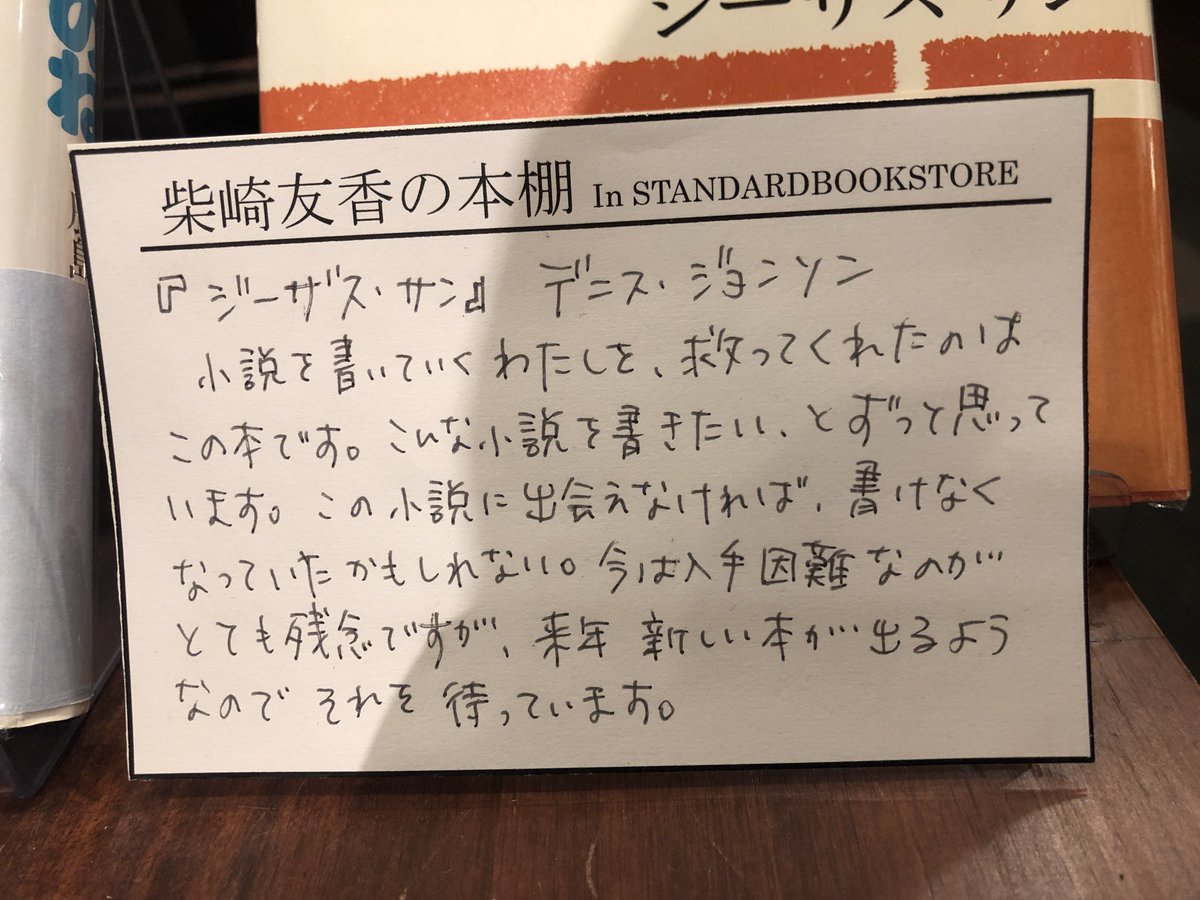 ジーザス・サン
柴崎友香の本棚 In STANDARDBOOKSTORE
『ジーザス・サン』 デニス・ジョンソン
小説を書いていくわたしを、救ってくれたのは
この本です。こんな小説を書きたい、とずっと思って
います。この小説に出会えなければ、書けなく
なっていたかもしれない。今は入手困難なのが
とても残念ですが、来年 新しい本が出るよう
なので それを 待っています。